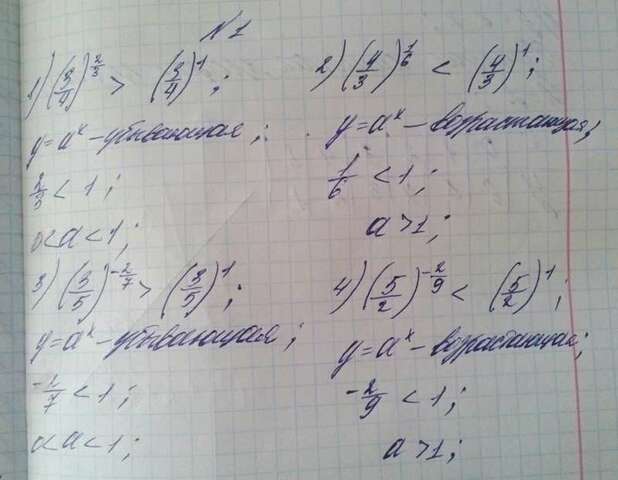 N 1
1) (3/4)^(2/3) > (3/4)^1;
y=a^x – убывающая;
2/3 < 1;
0<a<1;
2) (4/3)^(1/6) < (4/3)^1;
y=a^x – возрастающая;
1/6 < 1;
a>1;
3) (3/5)^(-2/7) > (3/5)^1;
y=a^x – убывающая;
-2/7 < 1;
0<a<1;
4) (5/2)^(-2/9) < (5/2)^1;
y=a^x – возрастающая;
-2/9 < 1;
a>1;